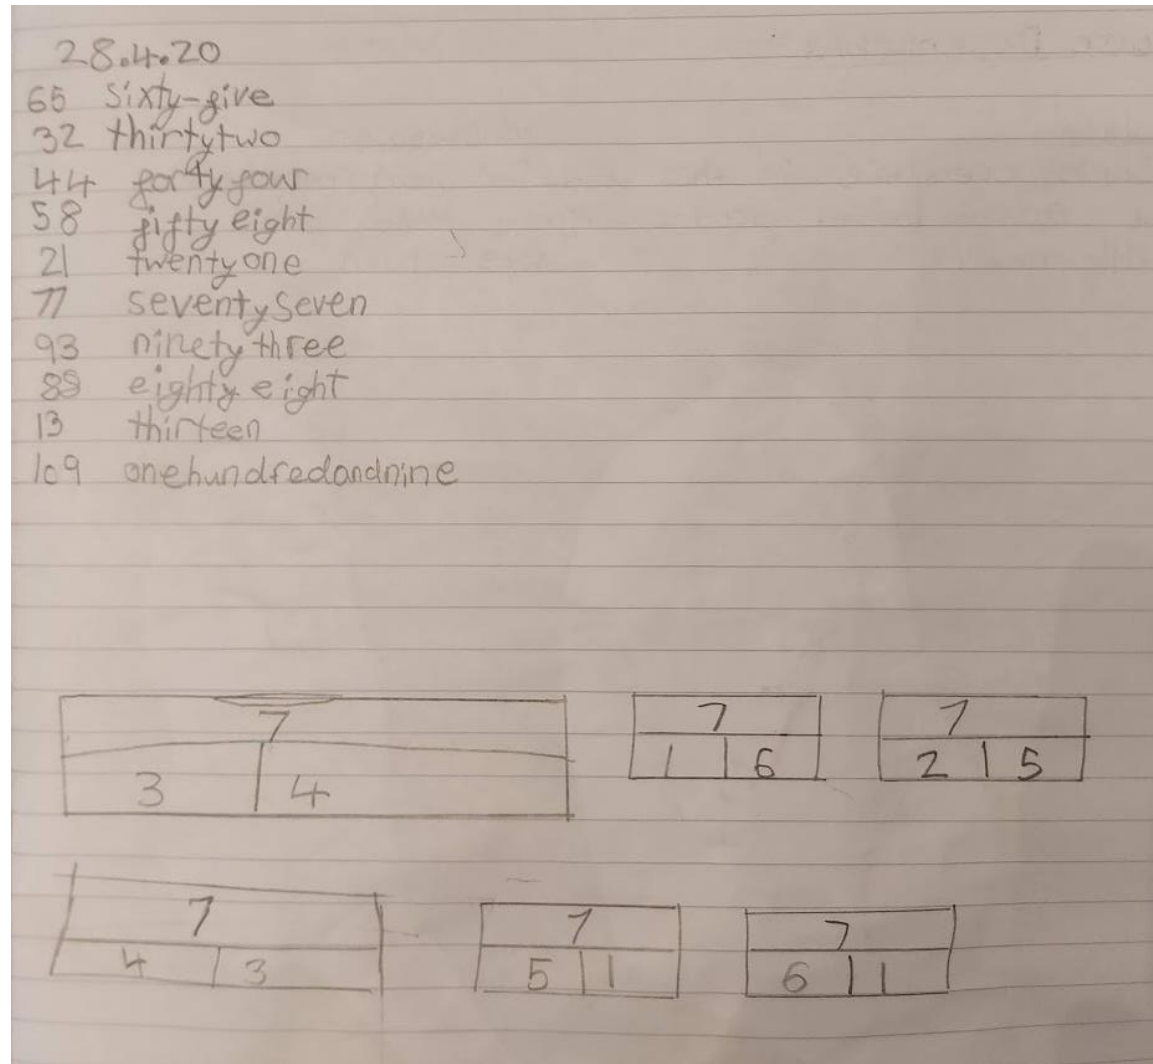 28.4.20
65 sixty-five
32 thirtytwo
44 forty four
58 fifty eight
21 twenty one
77 seventy seven
93 ninety three
88 eighty eight
13 thirteen
109 onehundredandnine
7 7 7
3 4 1 6 2 5
7 7 7
4 3 5 1 6 1